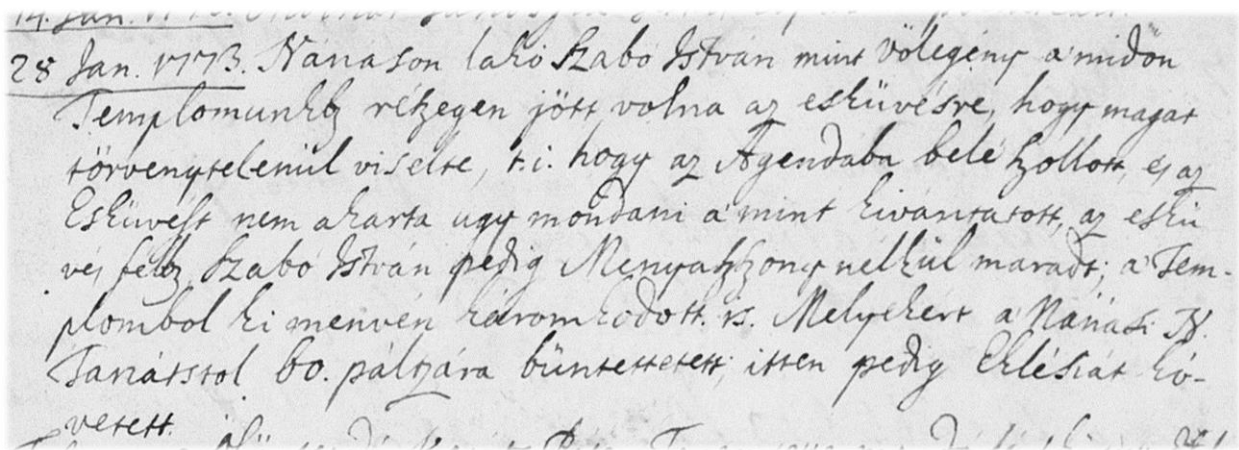 28 Jan. 1773. Nánáson lakó Szabó István mint Völegény a'midön
Templomunkb részegen jött volna az esküvésre, hogy magát
törvenytelenül viselte, t. i. hogy az Agendaba belé szóllott, es az
Esküvést nem akarta ugy mondani a'mint kivántatott, az eskü
vés félb Szabó István pedig Menyasszony nélkül maradt; a'Tem-
plombol ki menvén káromkodott is. Melyekért a'Nánási N.
Tanátstol 60. páltzára büntettetett; itten pedig Eklésiát kö-
vetett.